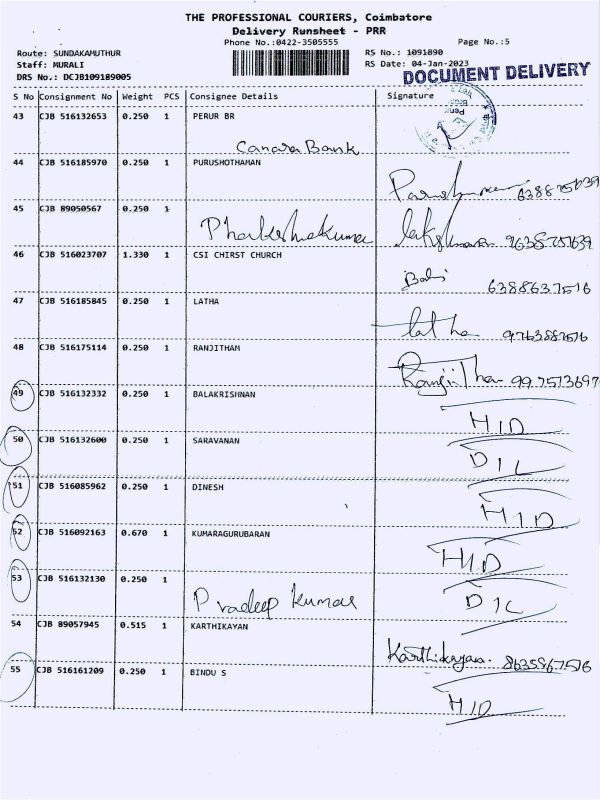 THE PROFESSIONAL COURIERS, Coimbatore
Delivery Runsheet - PRR
Phone No.:0422-3505555
Page No.:5
Route: SUNDAKAMUTHUR
RS No.: 1091890
Staff: MURALI
RS Date: 04-Jan-2023
DRS No.: DCJB109189005
DOCUMENT DELIVERY
S No Consignment No Weight PCS Consignee Details Signature
43 CJB 516132653 0.250 1 PERUR BR
Canara Bank
44 CJB 516185970 0.250 1 PURUSHOTHAMAN
45 CJB 89050567 0.250 1
46 CJB 516023707 1.330 1 CSI CHIRST CHURCH
6388637516
47 CJB 516185845 0.250 1 LATHA
latha
48 CJB 516175114 0.250 1 RANJITHAM
997513697
49 CJB 516132332 0.250 1 BALAKRISHNAN
HID
50 CJB 516132600 0.250 1 SARAVANAN
DIL
51 CJB 516085962 0.250 1 DINESH
HID
52 CJB 516092163 0.670 1 KUMARAGURUBARAN
HID
53 CJB 516132130 0.250 1
Pradeep Kumar DIL
54 CJB 89057945 0.515 1 KARTHIKAYAN
Karthikayan. 8635867516
55 CJB 516161209 0.250 1 BINDU S
HID